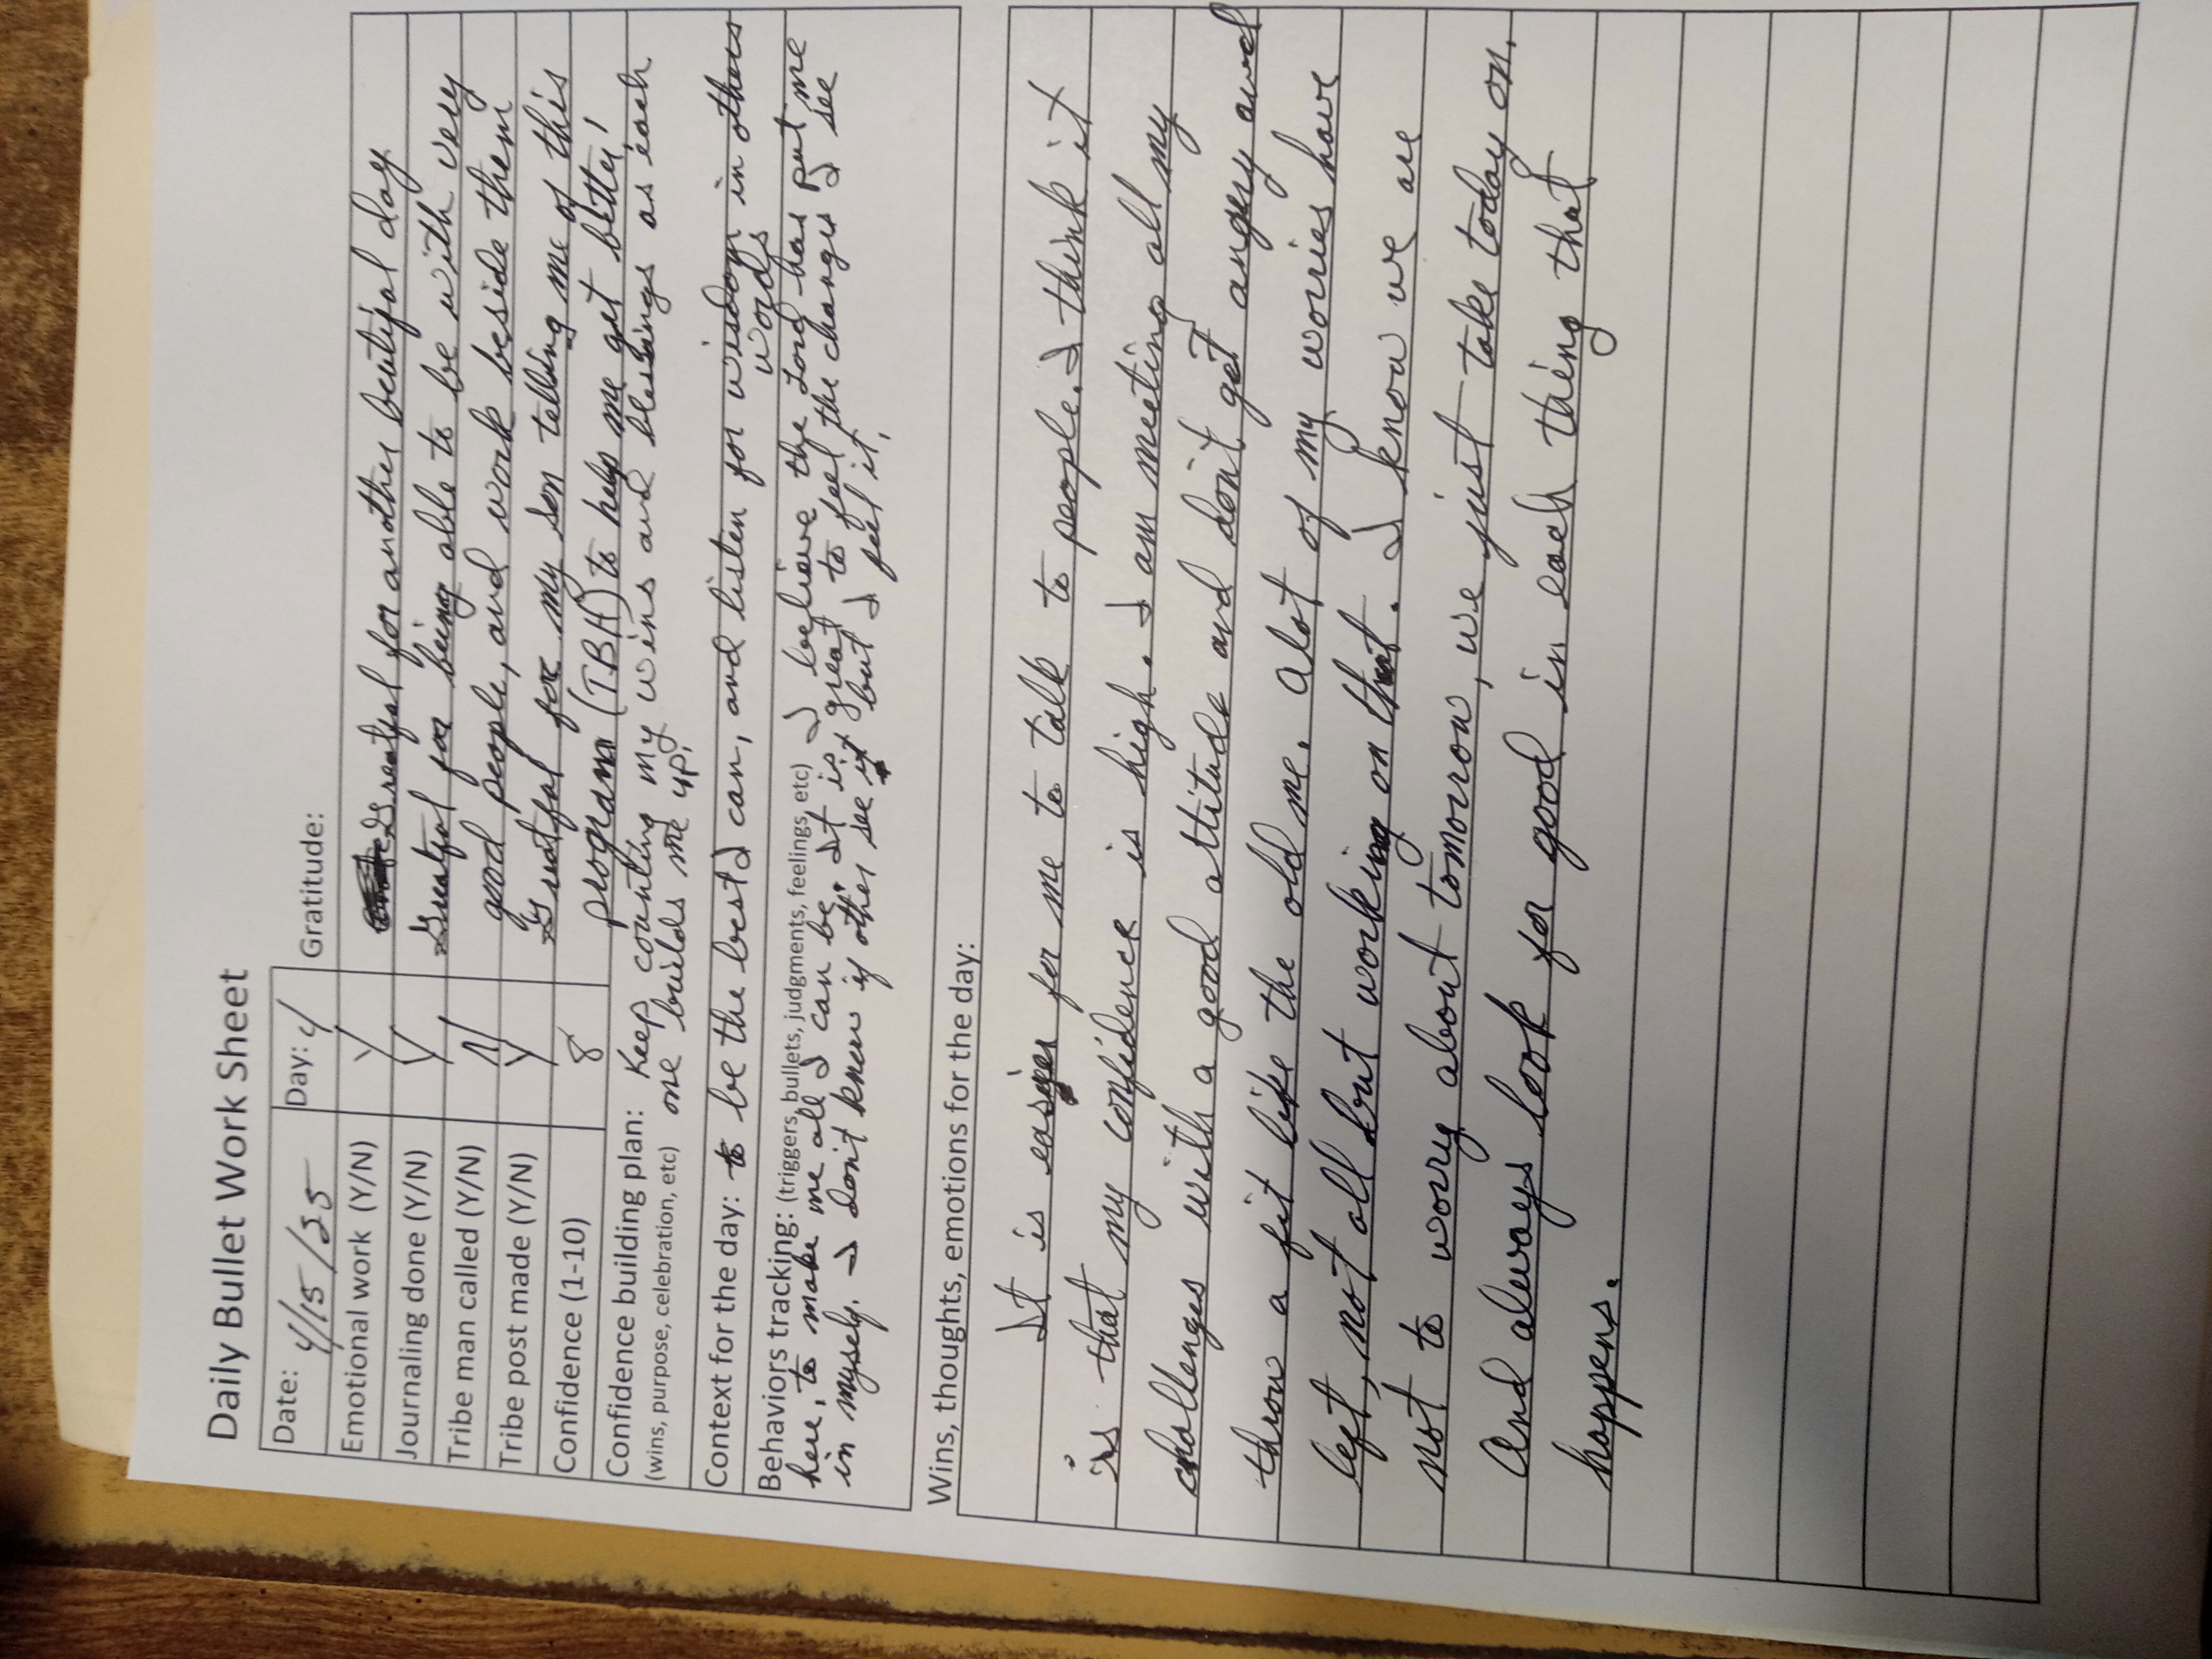 Daily Bullet Work Sheet
Date: 4/15/25 Day: 4 Gratitude:
Emotional work (Y/N) Y Greatful for another beutiful day
Journaling done (Y/N) Y Greatful for being able to be with very
Tribe man called (Y/N) N good people, and work beside them
Tribe post made (Y/N) Y Greatful for my son telling me of this
Confidence (1-10) 8 program (TBH) to help me get better!
Confidence building plan: Keep counting my wins and blessings as each
(wins, purpose, celebration, etc) one builds me up.
Context for the day: to be the best I can, and listen for wisdom in others
words
Behaviors tracking: (triggers, bullets, judgments, feelings, etc) I believe the Lord has put me
here, to make me all I can be. It is great to feel the changes I see
in myself. I don't know if other see it but I feel it.
Wins, thoughts, emotions for the day:
It is easier for me to talk to people. I think it
is that my confidence is high. I am meeting all my
challenges with a good attitude and don't get angery and
throw a fit like the old me. Alot of my worries have
left, not all but working on that. I know we are
not to worry about tomorrow, we just take today on.
And always look for good in each thing that
happens.